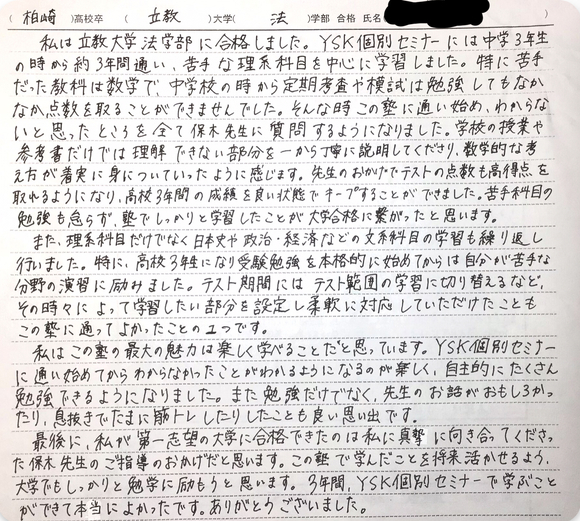 (柏崎)高校卒 (立教)大学(法)学部 合格 氏名(
私は立教大学法学部に合格しました。YSK個別セミナーには中学3年生
の時から約3年間通い、苦手な理系科目を中心に学習しました。特に苦手
だった教科は数学で、中学校の時から定期考査や模試は勉強してもなか
なか点数を取ることができませんでした。そんな時この塾に通い始め、わからな
いと思ったところを全て保木先生に質問するようになりました。学校の授業や
参考書だけでは理解できない部分を一から丁寧に説明してくださり、数学的な考
え方が着実に身についていったように感じます。先生のおかげでテストの点数も高得点を
取れるようになり、高校3年間の成績を良い状態でキープすることができました。苦手科目の
勉強も怠らず、塾でしっかりと学習したことが大学合格に繋がったと思います。
また、理系科目だけでなく日本史や政治・経済などの文系科目の学習も繰り返し
行いました。特に、高校3年生になり受験勉強を本格的に始めてからは自分が苦手な
分野の演習に励みました。テスト期間にはテスト範囲の学習に切り替えるなど、
その時々によって学習したい部分を設定し柔軟に対応していただけたことも
この塾に通ってよかったことの1つです。
私はこの塾の最大の魅力は楽しく学べることだと思っています。YSK個別セミナー
に通い始めてからわからなかったことがわかるようになるのが楽しく、自主的にたくさん
勉強できるようになりました。また勉強だけでなく、先生のお話がおもしろかっ
たり、息抜きでたまに筋トレしたりしたことも良い思い出です。
最後に、私が第一志望の大学に合格できたのは私に真摯に向き合ってくださっ
た保木先生のご指導のおかげだと思います。この塾で学んだことを将来活かせるよう、
大学でもしっかりと勉学に励もうと思います。3年間、YSK個別セミナーで学ぶこと
ができて本当によかったです。ありがとうございました。